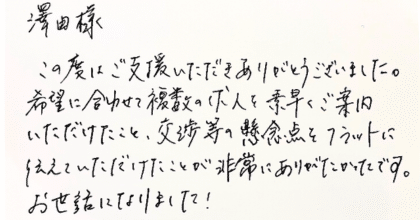 澤田様
この度はご支援いただきありがとうございました。
希望に合わせて複数の求人を素早くご案内
いただけたこと、交渉等の懸念点をフラットに
伝えていただけたことが非常にありがたかったです。
お世話になりました！